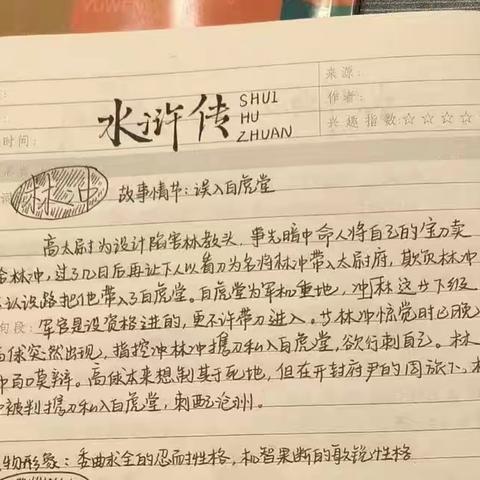 来源:
作者:
兴趣指数:☆☆☆☆
时间:
水浒传 SHUI HU ZHUAN
林冲 故事情节:误入白虎堂
高太尉为设计陷害林教头,事先暗中命人将自己的宝刀卖
给林冲,过了几日后再让下人以看刀为名将林冲带入太尉府,欺负林冲
不认识路把他带入了白虎堂。白虎堂为军机重地,冲林这廿下级
句段:军官是没资格进的,更不许带刀进入。廿林冲惊觉时已晚
高俅突然出现,指控冲林冲携刀私入白虎堂,欲行刺自己。林
冲百口莫辩。高俅本来想制其于死地,但在开封府尹的周旋下,林
冲被判携刀私入白虎堂,刺配沧州。
物形象:委曲求全的忍耐性格,机智果断的敏锐性格